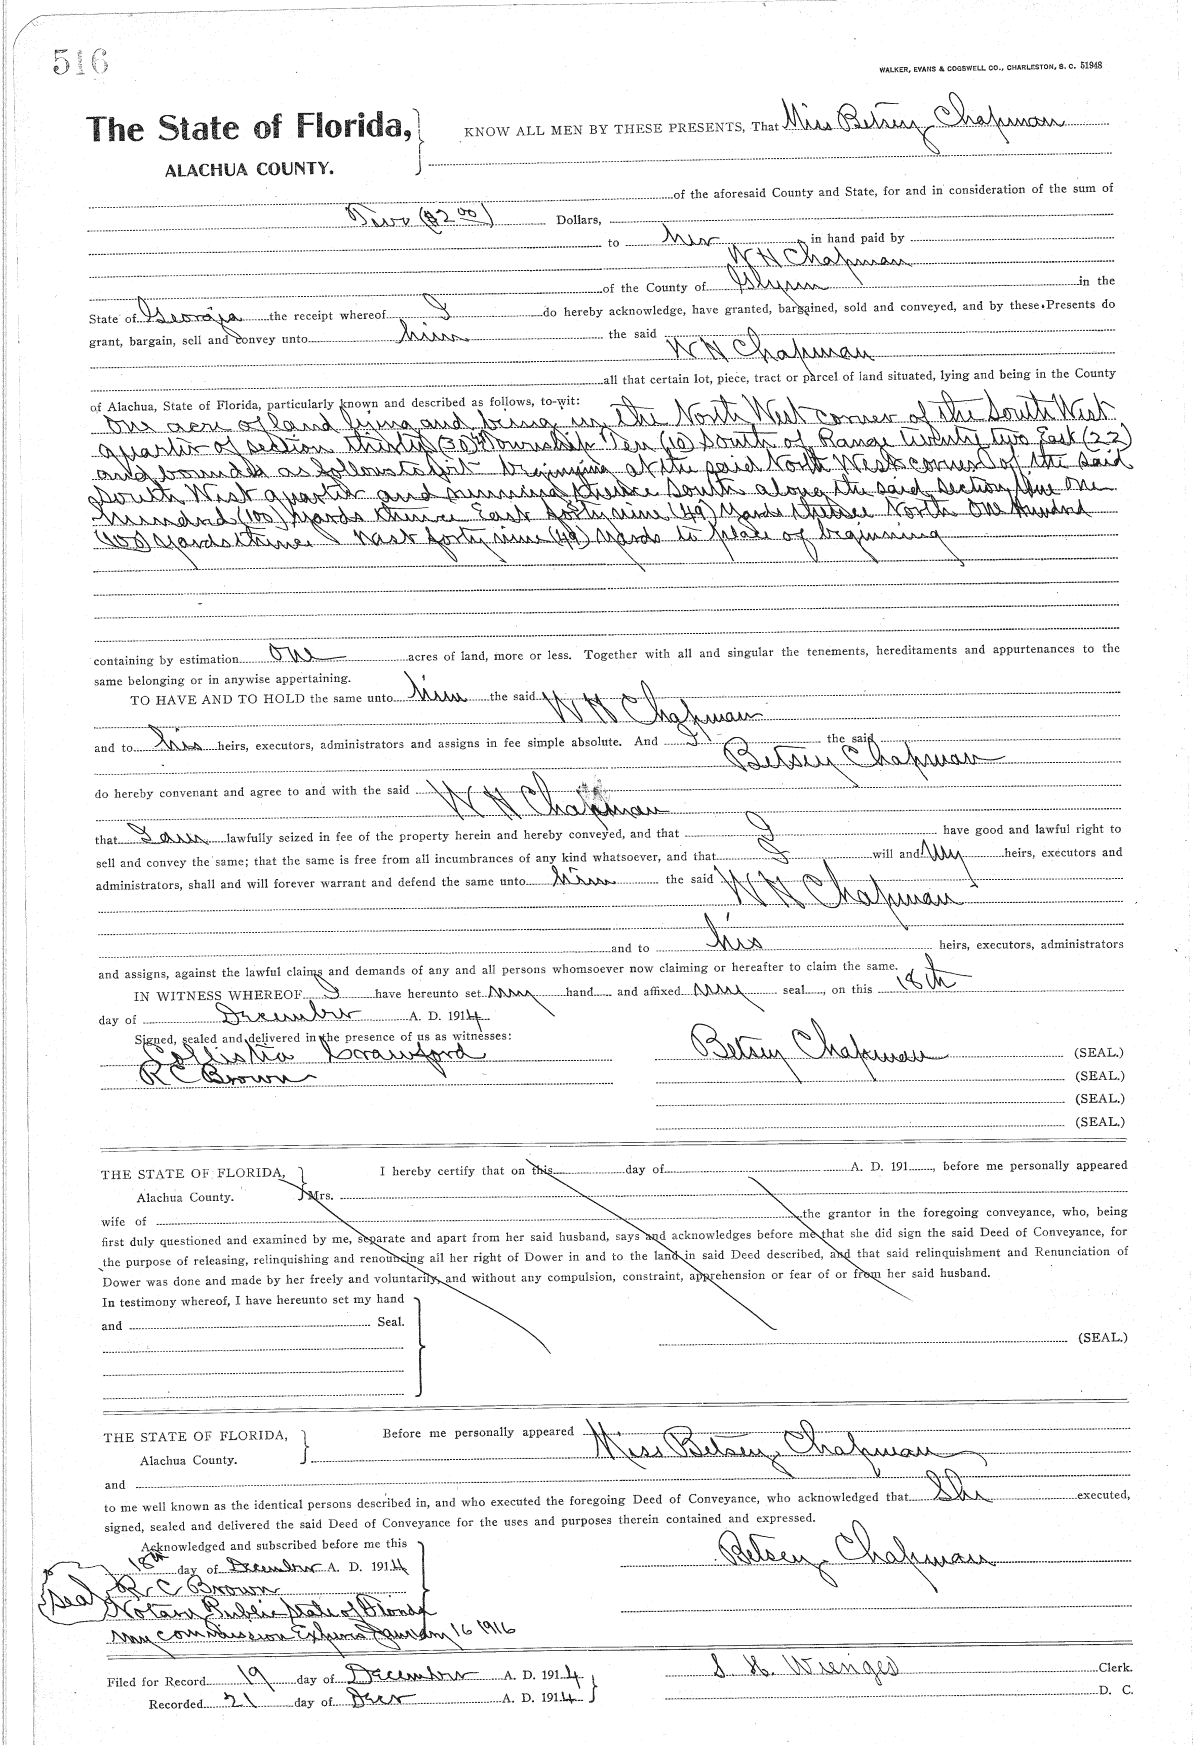 516
WALKER, EVANS & COGSWELL CO., CHARLESTON, S. C. 51948
The State of Florida,
ALACHUA COUNTY.
KNOW ALL MEN BY THESE PRESENTS, That Miss Betsey Chapman
of the aforesaid County and State, for and in consideration of the sum of
Two ($2.00) Dollars,
to her in hand paid by
W H Chapman
of the County of Glynn in the
State of Georgia the receipt whereof I do hereby acknowledge, have granted, bargained, sold and conveyed, and by these Presents do
grant, bargain, sell and convey unto him the said W H Chapman
all that certain lot, piece, tract or parcel of land situated, lying and being in the County
of Alachua, State of Florida, particularly known and described as follows, to-wit:
One acre of land lying and being in the North West corner of the South West
quarter of section thirty (30) Township Ten (10) South of Range Twenty two East (22)
and bounded as follows to wit beginning at the said North West corner of the said
South West quarter and running thence South along the said section line One
hundred (100) yards thence East forty nine (49) yards thence North One hundred
(100) yards thence West forty nine (49) yards to place of beginning
containing by estimation One acres of land, more or less. Together with all and singular the tenements, hereditaments and appurtenances to the
same belonging or in anywise appertaining.
TO HAVE AND TO HOLD the same unto him the said W H Chapman
and to his heirs, executors, administrators and assigns in fee simple absolute. And I the said
Betsey Chapman
do hereby convenant and agree to and with the said W H Chapman
that I am lawfully seized in fee of the property herein and hereby conveyed, and that I have good and lawful right to
sell and convey the same; that the same is free from all incumbrances of any kind whatsoever, and that I will and My heirs, executors and
administrators, shall and will forever warrant and defend the same unto him the said W H Chapman
and to his heirs, executors, administrators
and assigns, against the lawful claims and demands of any and all persons whomsoever now claiming or hereafter to claim the same.
IN WITNESS WHEREOF I have hereunto set my hand and affixed my seal, on this 18th
day of December A. D. 1914
Signed, sealed and delivered in the presence of us as witnesses:
Crawford
R C Brown
Betsey Chapman (SEAL.)
(SEAL.)
(SEAL.)
(SEAL.)
THE STATE OF FLORIDA,
Alachua County.
I hereby certify that on this day of A. D. 191 , before me personally appeared
Mrs.
wife of the grantor in the foregoing conveyance, who, being
first duly questioned and examined by me, separate and apart from her said husband, says and acknowledges before me that she did sign the said Deed of Conveyance, for
the purpose of releasing, relinquishing and renouncing all her right of Dower in and to the land in said Deed described, and that said relinquishment and Renunciation of
Dower was done and made by her freely and voluntarily, and without any compulsion, constraint, apprehension or fear of or from her said husband.
In testimony whereof, I have hereunto set my hand
and Seal.
(SEAL.)
THE STATE OF FLORIDA,
Alachua County.
Before me personally appeared Miss Betsey Chapman
and
to me well known as the identical persons described in, and who executed the foregoing Deed of Conveyance, who acknowledged that She executed,
signed, sealed and delivered the said Deed of Conveyance for the uses and purposes therein contained and expressed.
Acknowledged and subscribed before me this
18th day of December A. D. 1914
Betsey Chapman
Seal
R C Brown
Notary Public State of Florida
my commission Expires January 16 1916
Filed for Record 19 day of December A. D. 1914
S. H. Wienges Clerk.
Recorded 21 day of Decr A. D. 1914
D. C.